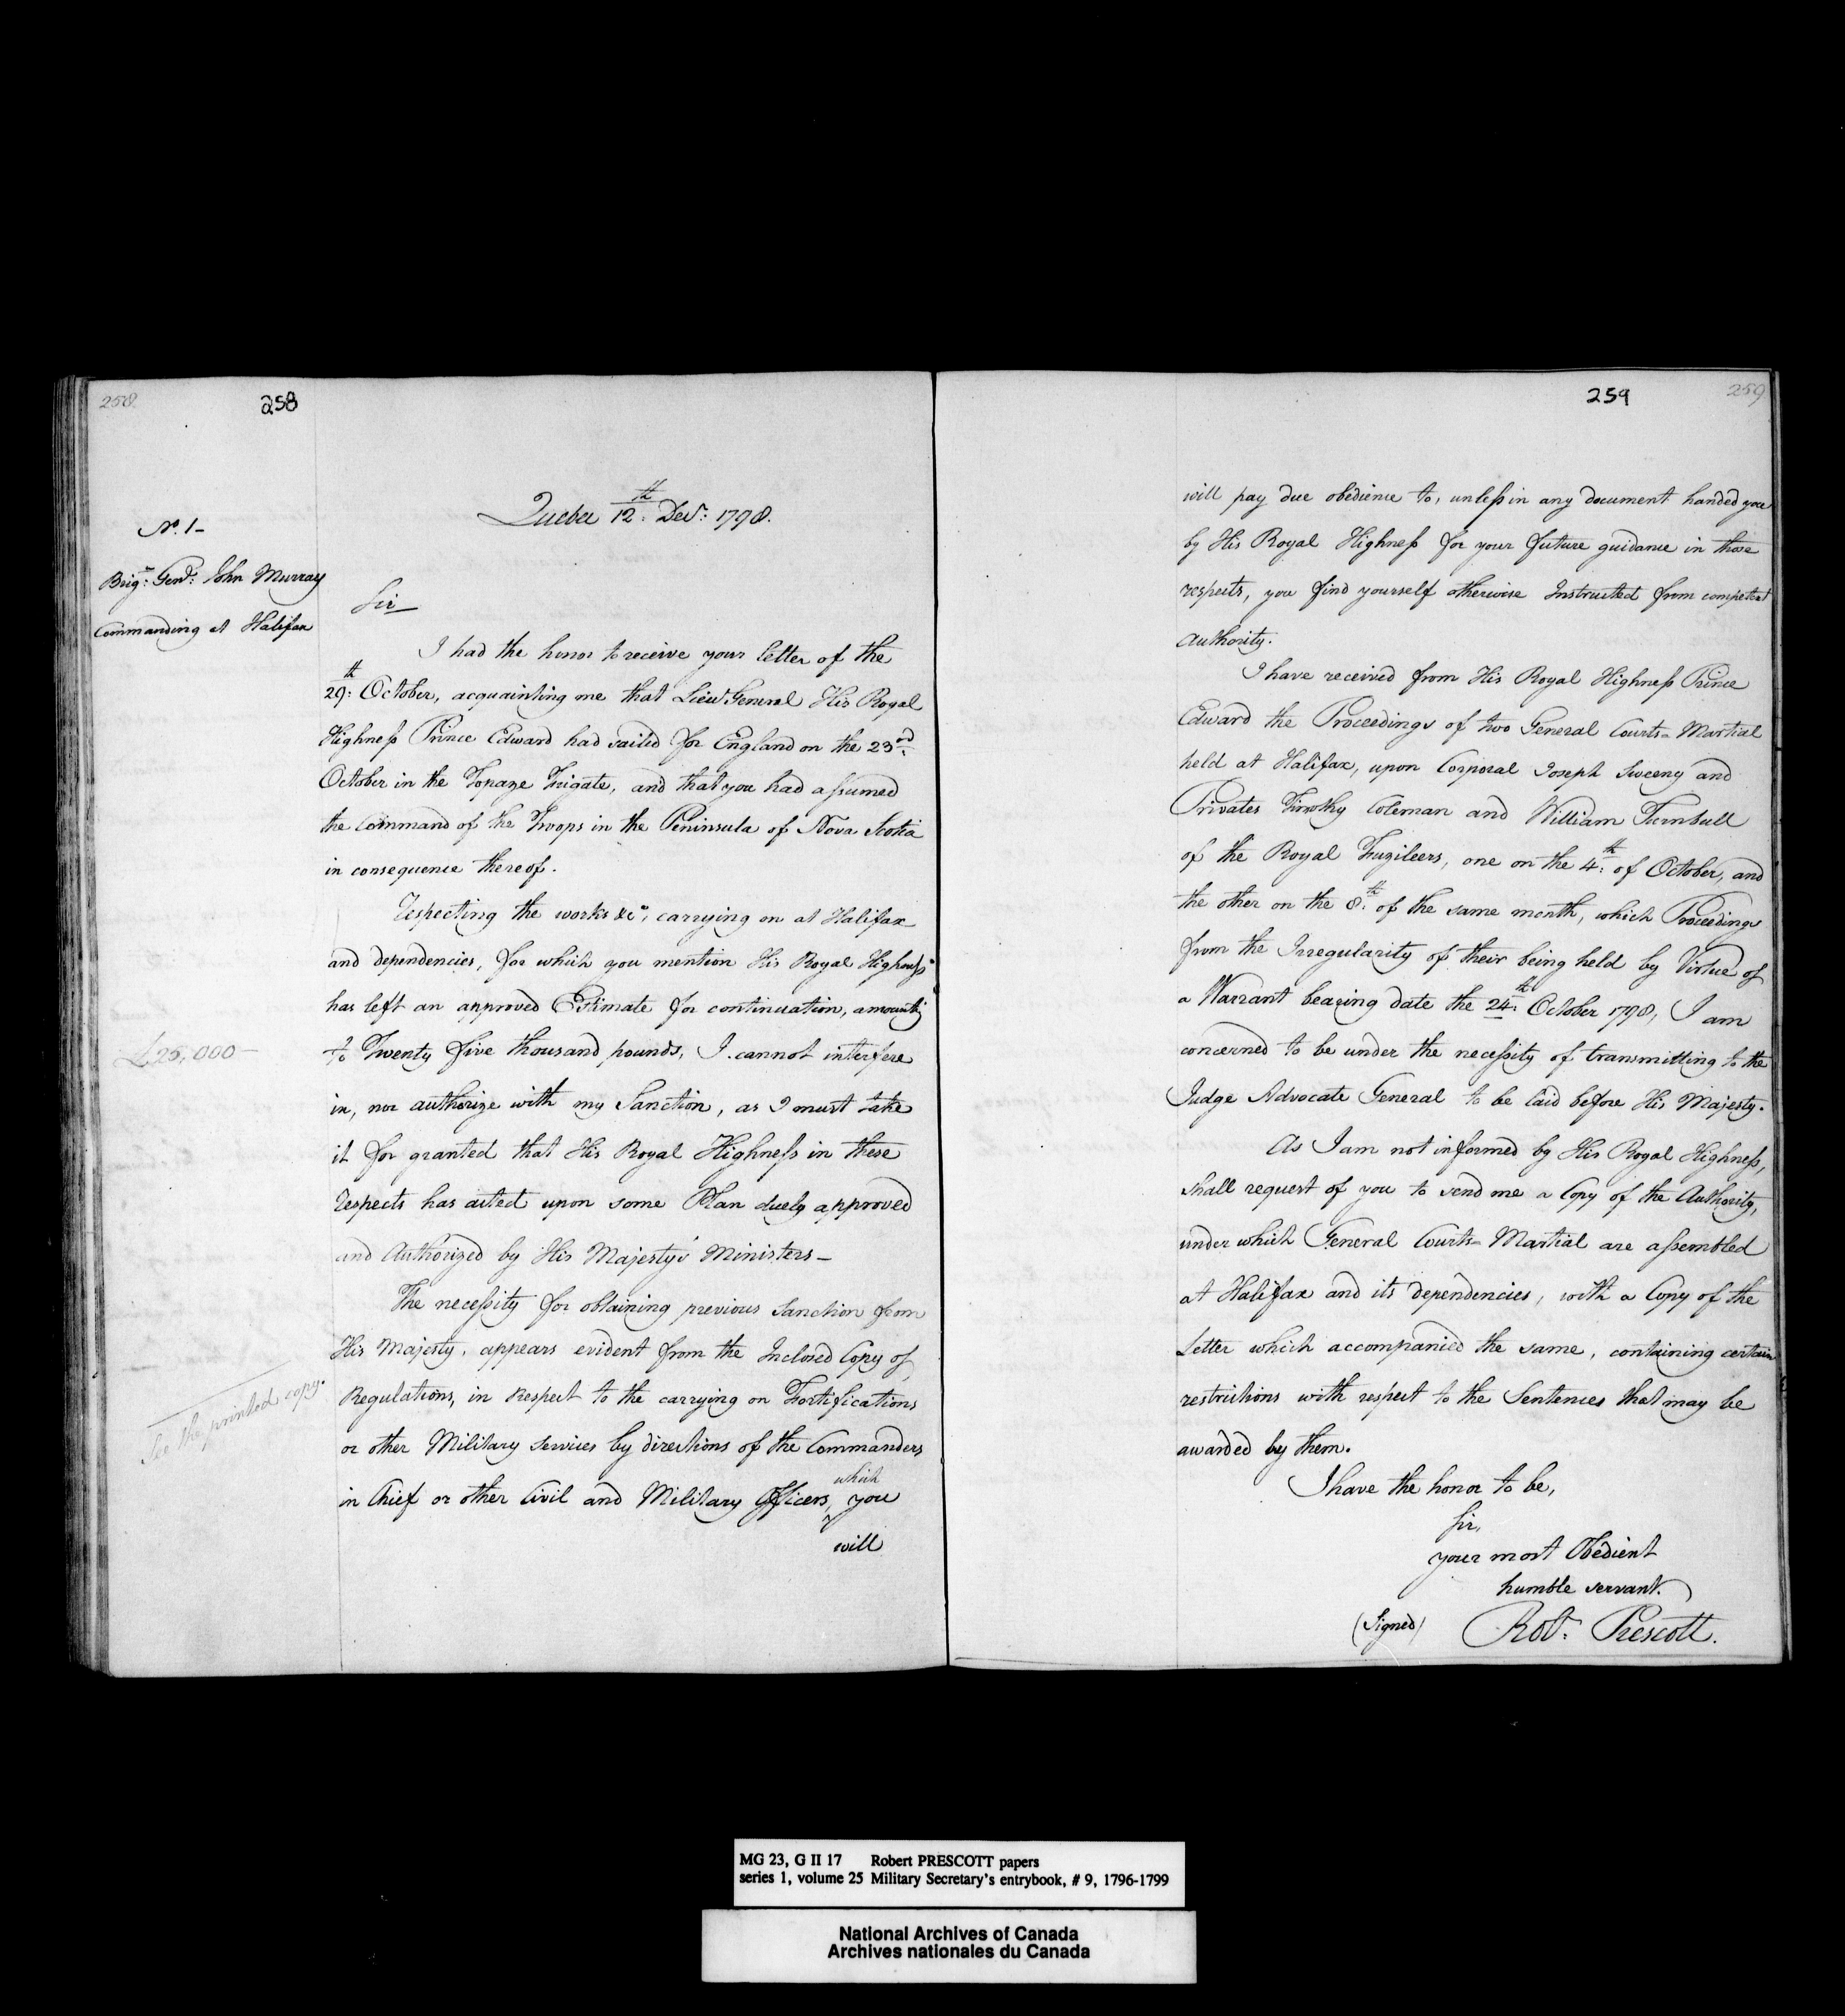 258
258
Quebec 12th: Decr: 1798.
No. 1-
Brigr: Genl: John Murray
Commanding at Halifax
Sir
I had the honor to receive your letter of the
29th: October, acquainting me that Lieut General His Royal
Highneſs Prince Edward had sailed for England on the 23rd
October in the Topaze Frigate, and that you had aſsumed
the Command of the Troops in the Peninsula of Nova Scotia
in consequence thereof.
Respecting the works &ca, carrying on at Halifax
and dependencies, for which you mention His Royal Highneſs
has left an approved Estimate for continuation, amountg
£25,000-
to Twenty five thousand pounds, I cannot interfere
in, nor authorize with my Sanction, as I must take
it for granted that His Royal Highneſs in these
Respects has acted upon some Plan duely approved
and Authorized by His Majesty's Ministers-
The neceſsity for obtaining previous Sanction from
His Majesty, appears evident from the Inclosed Copy of
See the printed copy.
Regulations, in Respect to the carrying on Fortifications
or other Military Services by directions of the Commanders
in Chief or other Civil and Military Officers, which you
will
259
259
will pay due obedience to, unleſs in any document handed you
by His Royal Highneſs for your future guidance in those
respects, you find yourself otherwise Instructed from competent
authority.
I have received from His Royal Highneſs Prince
Edward the Proceedings of two General Courts-Martial
held at Halifax, upon Corporal Joseph Sweeny and
Privates Timothy Coleman and William Turnbull
of the Royal Fuzileers, one on the 4th: of October, and
the other on the 8th. of the same month, which Proceedings
from the Irregularity of their being held by Virtue of
a Warrant bearing date the 24th: October 1798, I am
concerned to be under the neceſsity of transmitting to the
Judge Advocate General to be laid before His Majesty.
As I am not informed by His Royal Highneſs,
shall request of you to send me a Copy of the Authority,
under which General Courts-Martial are aſsembled
at Halifax and its dependencies, with a Copy of the
Letter which accompanied the same, containing certain
restrictions with respect to the Sentences that may be
awarded by them.
I have the honor to be,
Sir,
your most Obedient
humble servant.
(Signed) Robt: Prescott.
MG 23, G II 17 Robert PRESCOTT papers
series 1, volume 25 Military Secretary's entrybook, # 9, 1796-1799
National Archives of Canada
Archives nationales du Canada